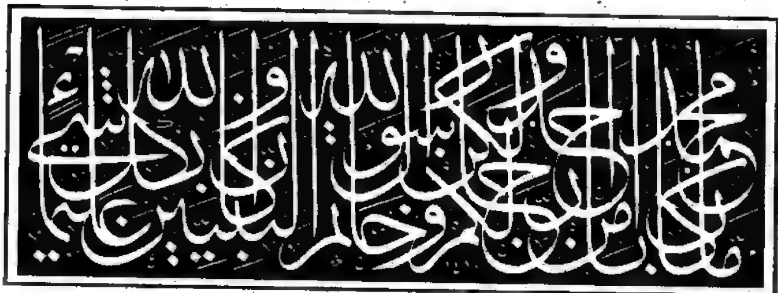 ما كان محمد ابا احد من رجالكم ولكن رسول الله وخاتم النبيين وكان الله بكل شيء عليما